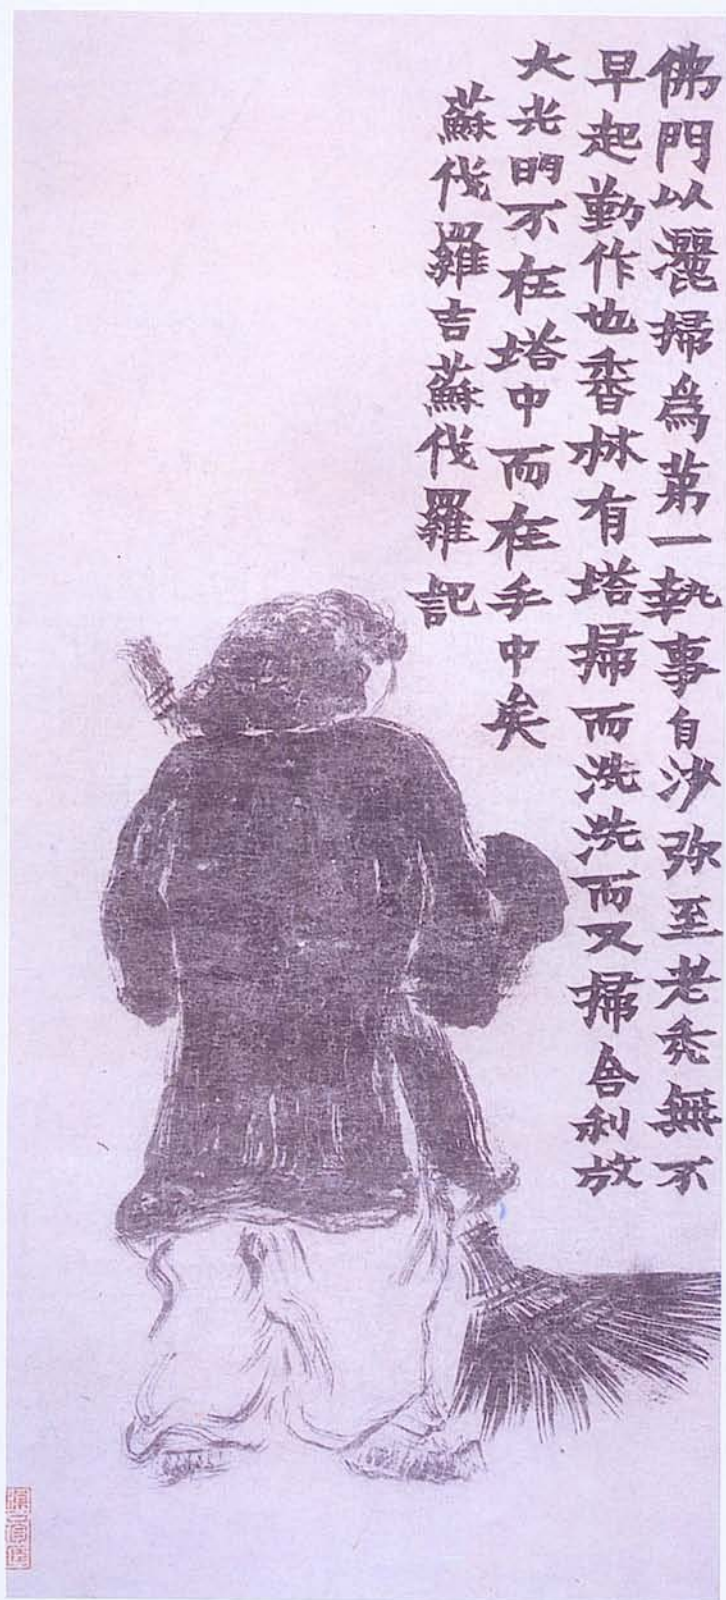 佛門以灑掃爲第一執事自沙弥至老秃無不
早起勤作也香林有塔掃而洗洗而又掃舍利放
大光明不在塔中而在手中矣
蘇伐羅吉蘇伐羅記